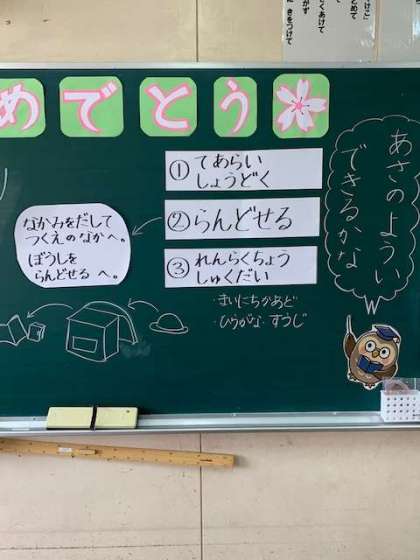 に きをつけて
めでとう
あさのようい
できるかな
① てあらい
しょうどく
② らんどせる
③ れんらくちょう
しゅくだい
・まいにちかあど
・ひらがな・すうじ
なかみをだして
つくえのなかへ。
ぼうしを
らんどせる へ。